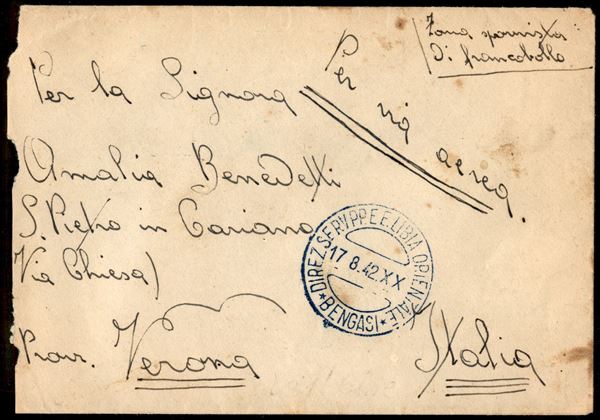 Zona sprovvista
di francobollo
Per via aerea.
Per la Signora
Amalia Benedetti
S. Pietro in Cariano
Via Chiesa)
Prov. Verona
Italia
DIREZ. SERV. PP. E E. LIBIA ORIENTALE
17 8.42.XX
* BENGASI *